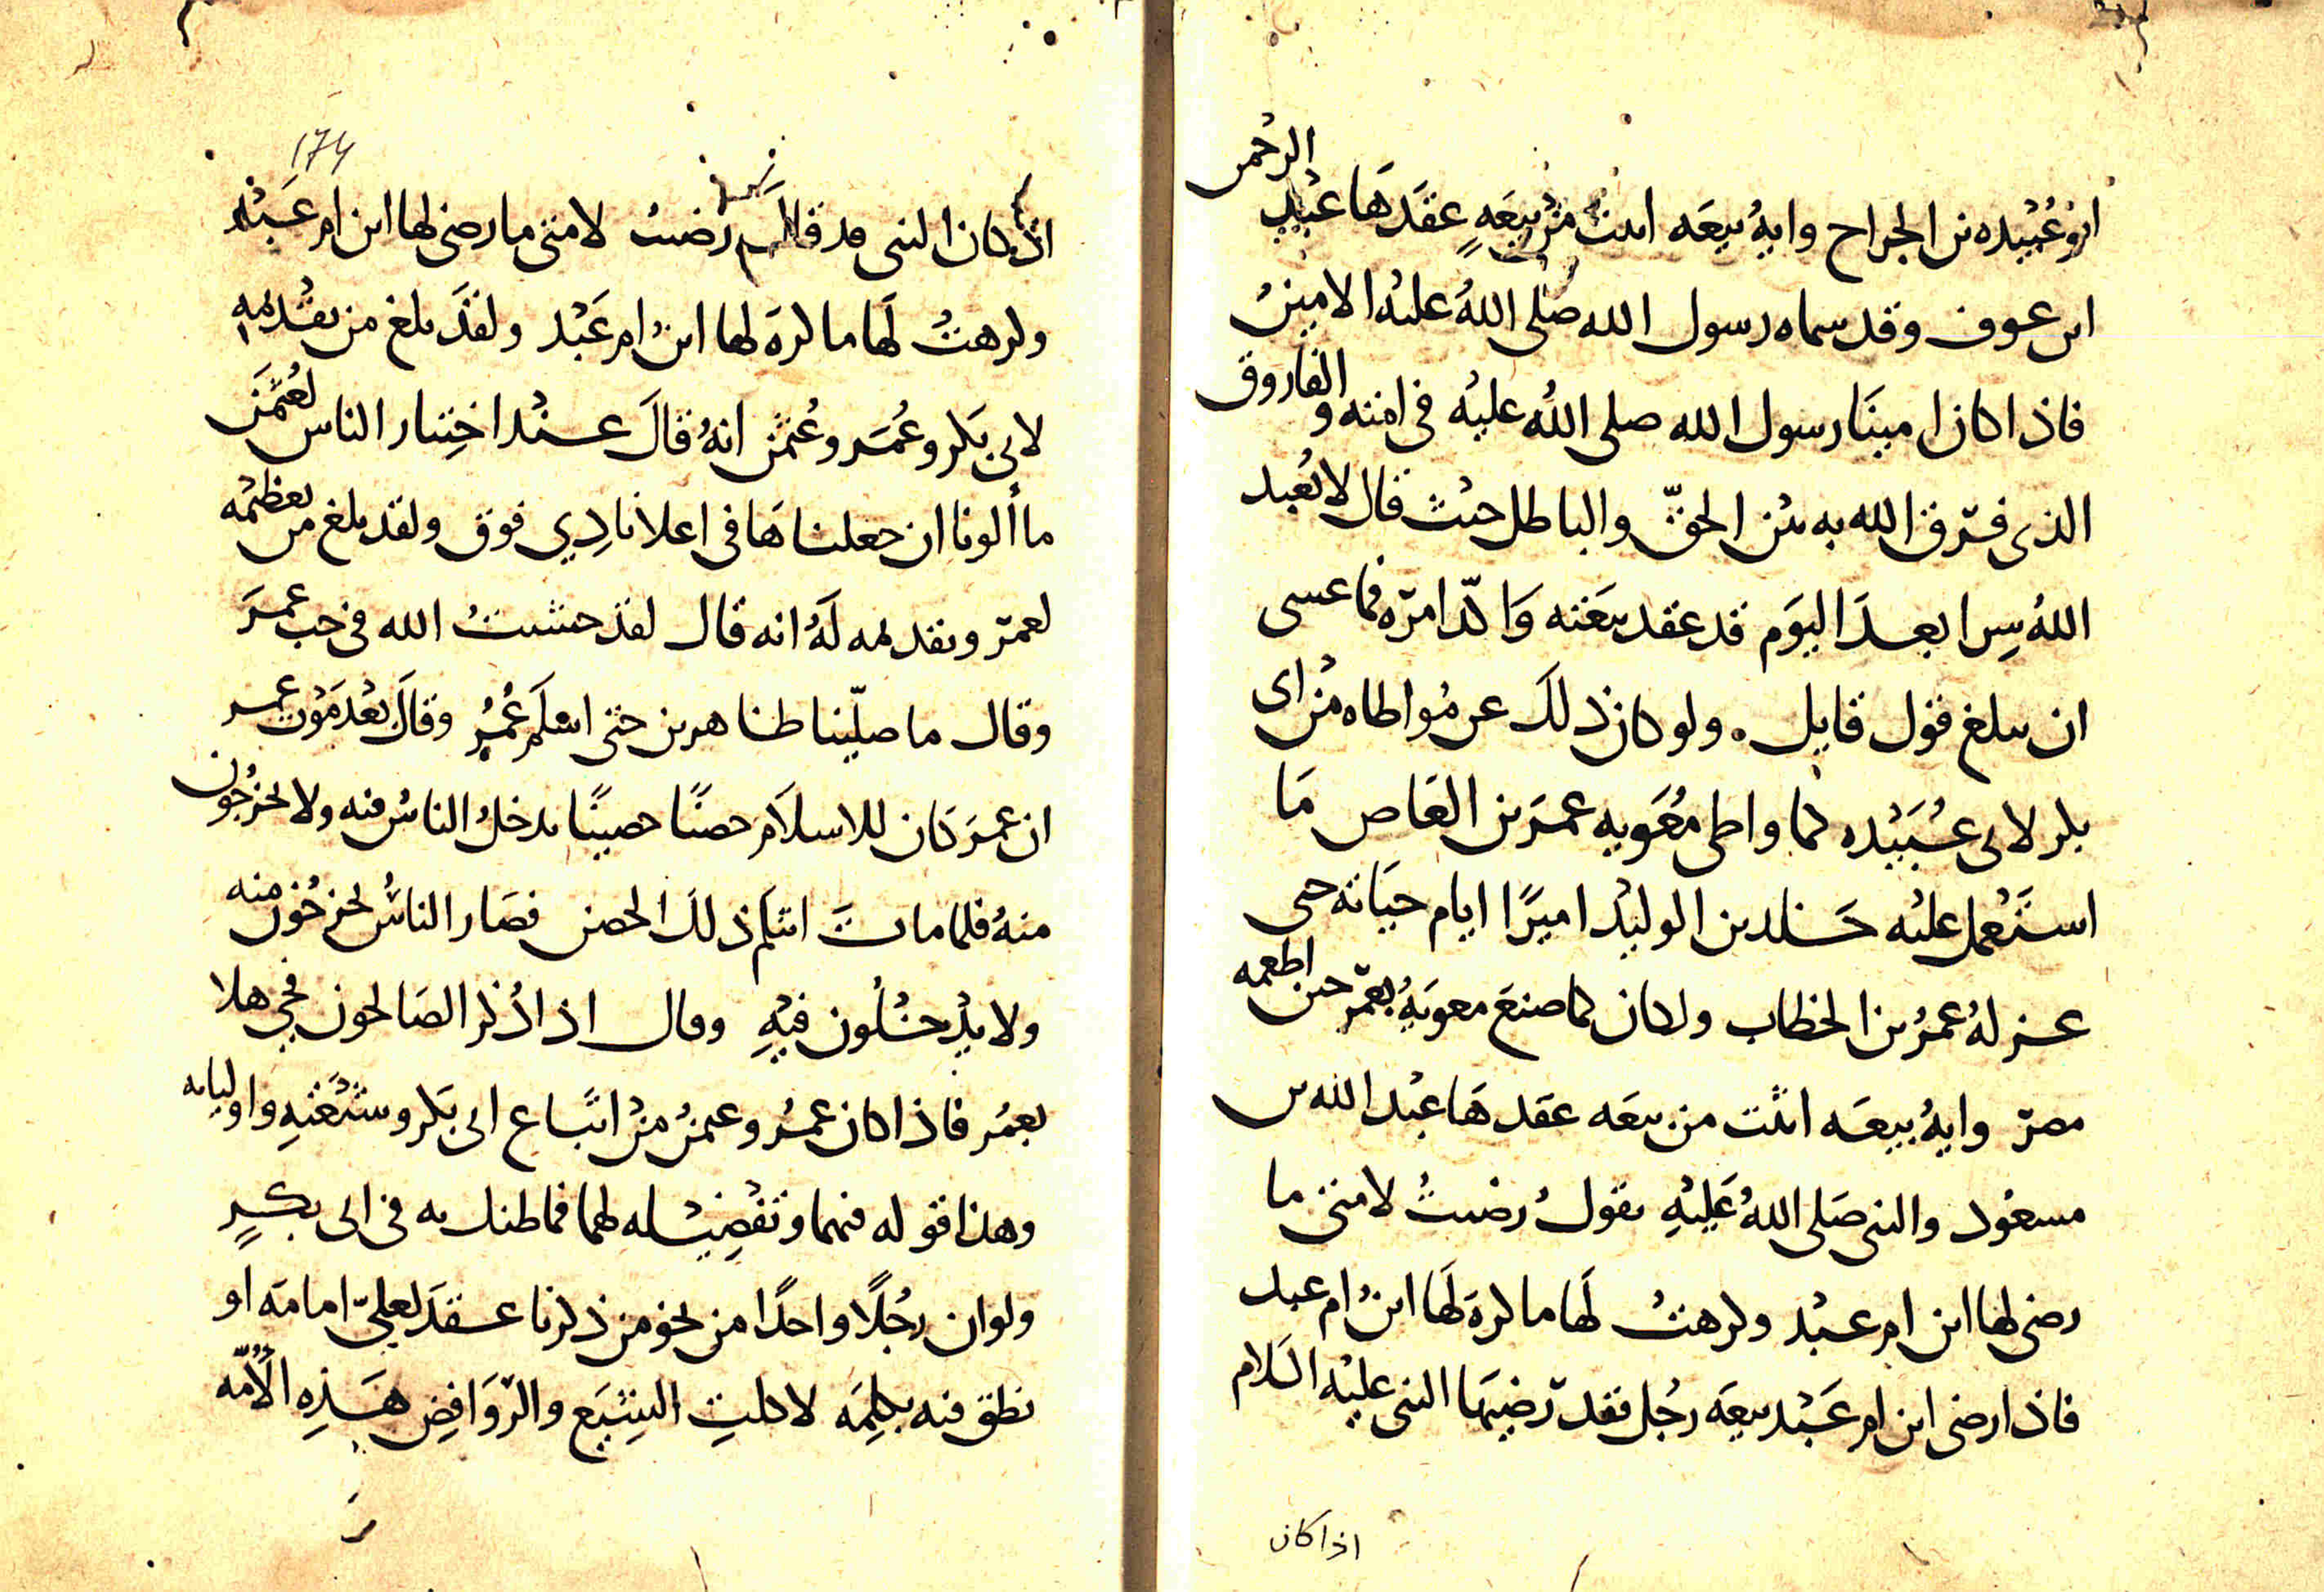 الرحمن
ابو عبيده بن الجراح وايه بيعه اثبت من بيعه عقدها عبد
ابن عوف وقد سماه رسول الله صلى الله عليه الامين
فاذا كان امينا رسول الله صلى الله عليه في امته والفاروق
الذي فرق الله به بين الحق والباطل حيث قال لا نعبد
الله سرا بعد اليوم قد عقد بيعته واكد امره فما عسى
ان يبلغ قول قايل . ولو كان ذلك عن مواطاه من ابي
بكر لابي عبيده كما واطى معويه عمر بن العاص ما
استعمل عليه خالد بن الوليد اميرا ايام حياته حتى
عزله عمر بن الخطاب ولكان كما صنع معويه بعمر حين اطعمه
مصر وايه بيعه اثبت من بيعه عقدها عبد الله بن
مسعود والنبي صلى الله عليه يقول رضيت لامتي ما
رضي لها ابن ام عبد وكرهت لها ما كره لها ابن ام عبد
فاذا رضي ابن ام عبد بيعه رجل فقد رضيها النبي عليه السلام
اذا كان
174
اذ كان النبي قد قال رضيت لامتي ما رضي لها ابن ام عبد
وكرهت لها ما كره لها ابن ام عبد ولقد بلغ من تقديمه
لابي بكر وعمر وعثمن انه قال عند اختيار الناس لعثمن
ما ألونا ان جعلناها في اعلانا دي فوق ولقد بلغ من تعظيمه
لعمر وتقديمه له انه قال لقد خشيت الله في حب عمر
وقال ما صلينا ظاهرين حتى اسلم عمر وقال بعد موت عمر
ان عمر كان للاسلام حصنا حصينا يدخل الناس فيه ولا يخرجون
منه فلما مات انثلم ذلك الحصن فصار الناس يخرجون منه
ولا يدخلون فيه وقال اذا ذكر الصالحون فحي هلا
بعمر فاذا كان عمر وعثمن من اتباع ابي بكر وشيعته واوليايه
وهذا قوله فيهما وتفضيله لهما فما ظنك به في ابي بكر
ولو ان رجلا واحدا من نحو من ذكرنا عقد لعلي امامه او
نطق فيه بكلمه لاكلت الشيع والروافض هذه الامه